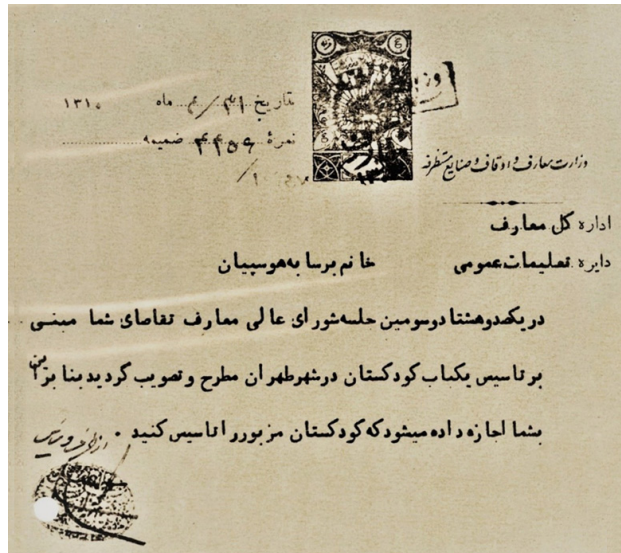 تاریخ ۳۱/۴ ماه ۱۳۱۰
نمرهٔ ۴۴۵۶ ضمیمه
وزارت معارف و اوقاف و صنایع مستظرفه
اداره کل معارف
دایره تعلیمات عمومی
خانم برسابه هوسپیان
در یکصد و هشتاد و سومین جلسه شورای عالی معارف تقاضای شما مبنی
بر تاسیس یکباب کودکستان در شهر طهران مطرح و تصویب گردید بنا بر این
بشما اجازه داده میشود که کودکستان مزبور را تاسیس کنید .